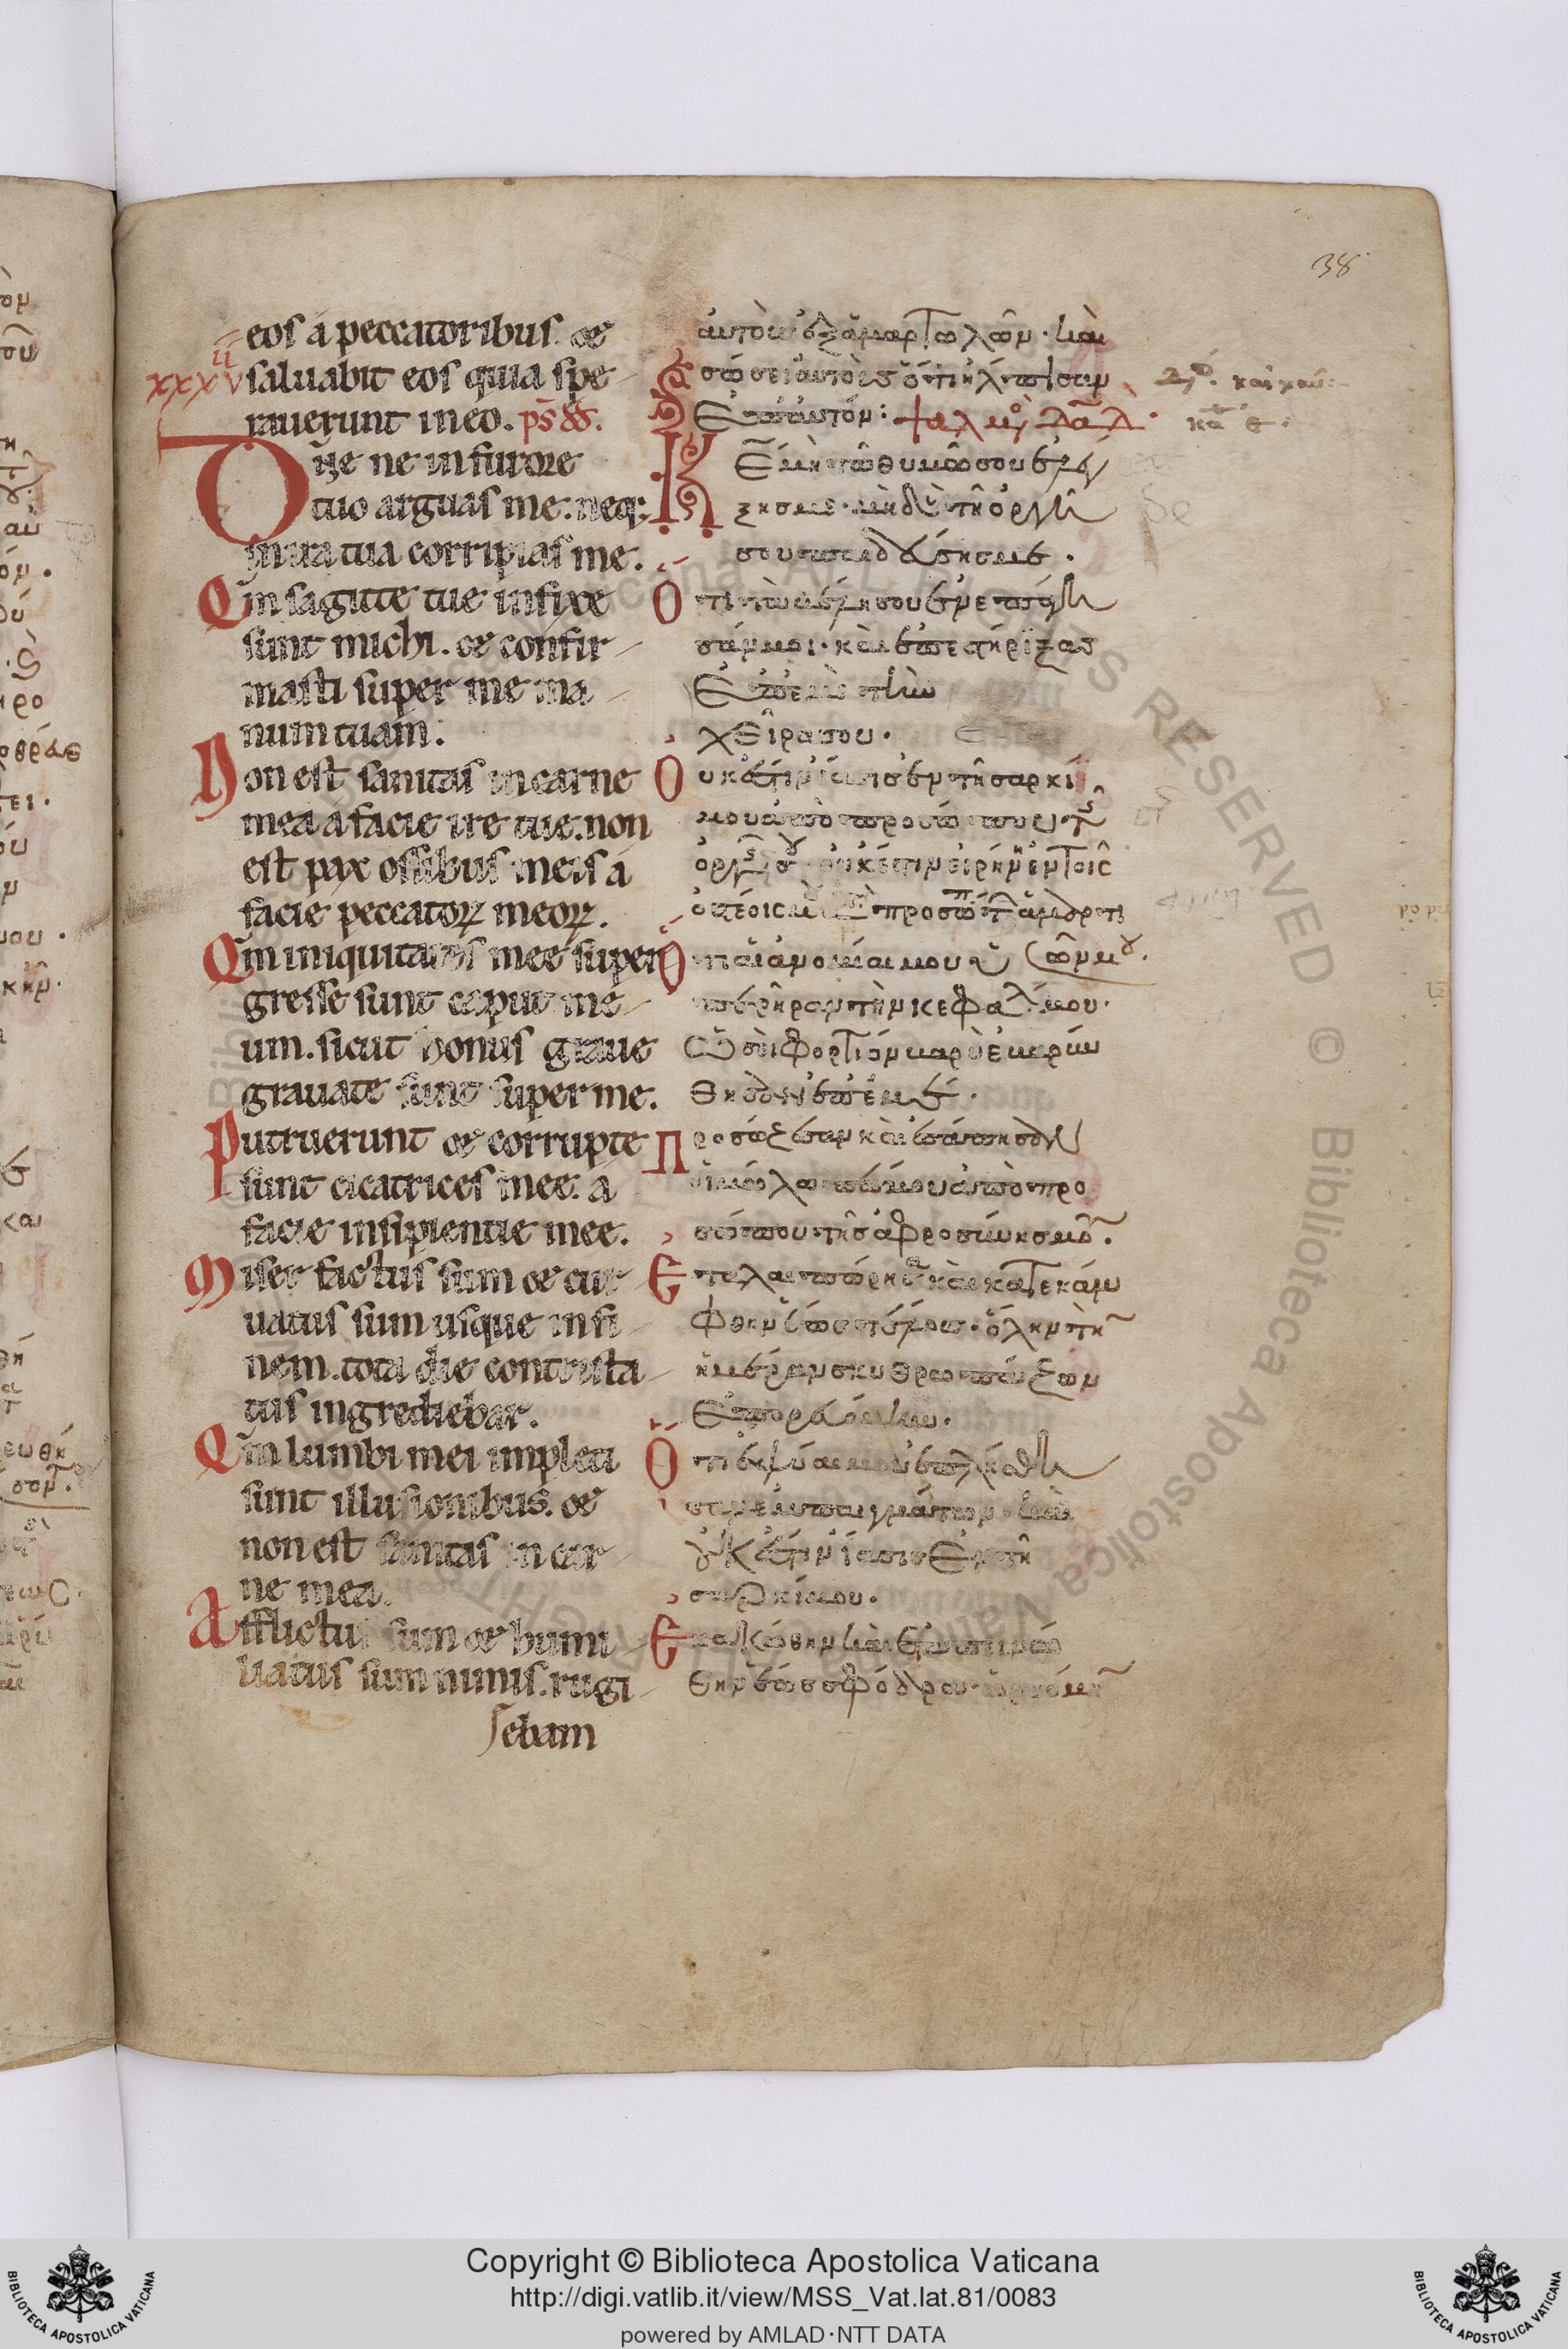 38
eos a peccatoribus. et
saluabit eos quia spe
rauerunt in eo. ps dd.
xxxvii
Dne ne in furore
tuo arguas me. neq;
in ira tua corripias me.
Qm sagitte tue infixe
sunt michi. et confir
masti super me ma
num tuam.
Non est sanitas in carne
mea a facie ire tue. non
est pax ossibus meis a
facie peccatorꝝ meorꝝ.
Qm iniquitates mee super
gresse sunt caput me
um. sicut honus graue
grauate sunt super me.
Putruerunt et corrupte
sunt cicatrices mee. a
facie insipientie mee.
Miser factus sum et cur
uatus sum usque in fi
nem. tota die contrista
tus ingrediebar.
Qm lumbi mei impleti
sunt illusionibus. et
non est sanitas in car
ne mea.
Afflictus sum et humi
liatus sum nimis. rugi
ebam
αὐτοὺς ἐξ ἁμαρτωλῶν· καὶ
σώσει αὐτοὺς ὅτι ἤλπισαν
ἐπ αὐτόν: ψαλμὸς δαδ·
Κε μὴ τῶ θυμῶ σου ἐλέγ
ξης με· μὴ δὲ τῆ ὀργῆ
σου παιδεύσης με·
Ὅτι τὰ βέλη σου ἐνεπάγη
σάν μοι· καὶ ἐπεστήριξας
ἐπ ἐμὲ τὴν
χεῖρα σου·
Οὐκ ἔστιν ἴασις ἐν τῆ σαρκί
μου ἀπὸ προσώπου τῆς
ὀργῆς σου· οὐκ ἔστιν εἰρήνη ἐν τοῖς
ὀστέοις μου ἀπὸ προσώπου τῶν ἁμαρτι
ῶν μου.
Ὅτι αἱ ἀνομίαι μου ὑ
περῆραν τὴν κεφαλήν μου·
ὡσεὶ φορτίον βαρὺ ἐβαρύν
θησαν ἐπ ἐμέ·
Προσώζεσαν καὶ ἐσάπησαν
οἱ μώλωπές μου ἀπὸ προ
σώπου τῆς ἀφροσύνης μου.
Ἐταλαιπώρησα καὶ κατεκάμ
φθην ἕως τέλους· ὅλην τὴν
ἡμέραν σκυθρωπάζων
ἐπορευόμην·
Ὅτι αἱ ψύαι μου ἐπλήσθη
σαν ἐμπαιγμάτων· καὶ
οὐκ ἔστιν ἴασις ἐν τῆ
σαρκί μου·
Ἐκακώθην καὶ ἐταπεινώ
θην ἕως σφόδρα· ὠρυόμην
Copyright © Biblioteca Apostolica Vaticana
http://digi.vatlib.it/view/MSS_Vat.lat.81/0083
powered by AMLAD·NTT DATA